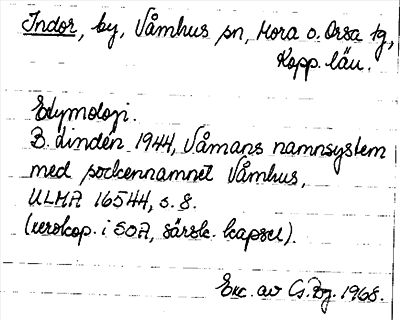 Indor, by, Våmhus sn, Mora o. Orsa tg,
Kopp. län.
Etymologi.
B. Lindén 1944, Våmåns namnsystem
med sockennamnet Våmhus,
ULMA 16544, s. 8.
(xerokop. i SOA, särsk. kapsel).
Exc. av
1968.